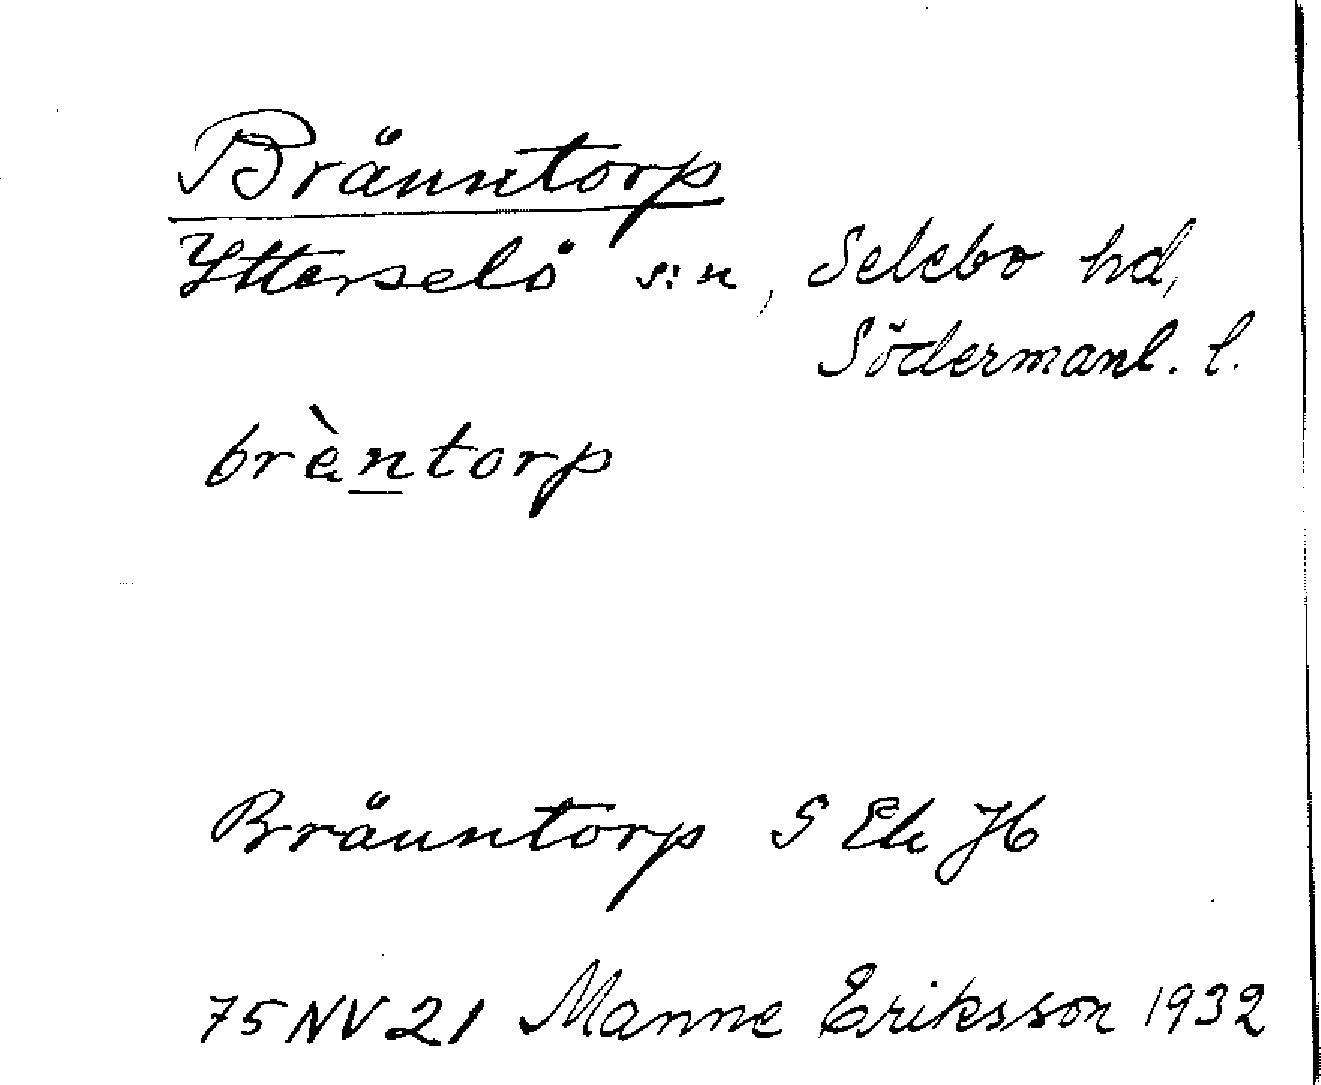 Bränntorp
Ytterselö s:n, Selebo hd,
Södermanl. l.
brèntorp
Bränntorp S Ek Jb
75 NV 21 Manne Eriksson 1932